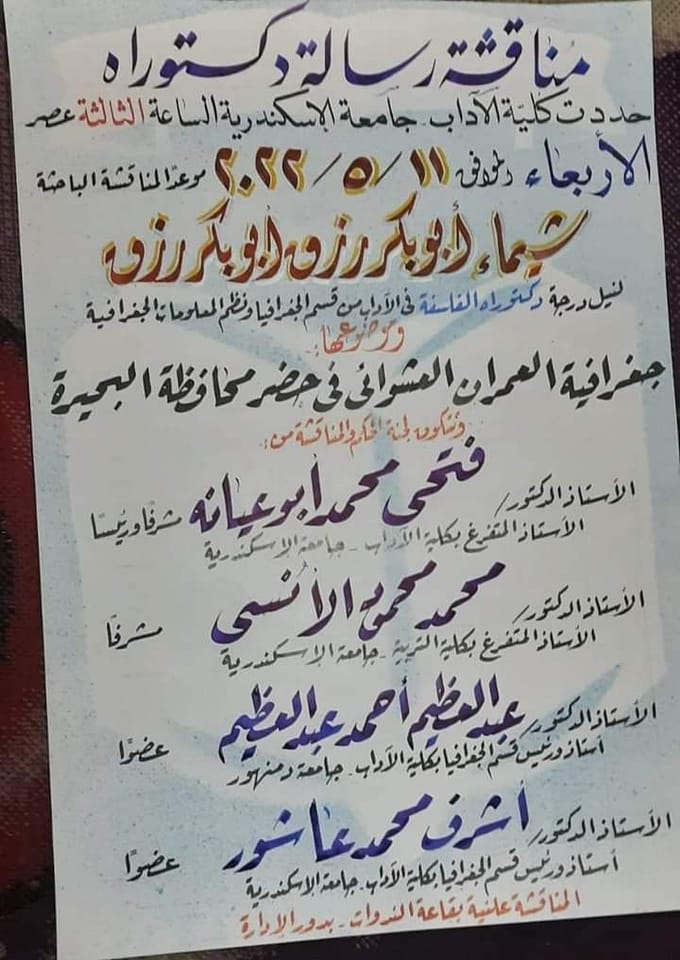 مناقشة رسالة دكتوراه
حددت كلية الآداب - جامعة الإسكندرية الساعة الثالثة عصر
الأربعاء الموافق ١١ / ٥ / ٢٠٢٢ موعدًا لمناقشة الباحثة
شيماء أبوبكر رزق أبوبكر رزق
لنيل درجة دكتوراه الفلسفة فى الآداب من قسم الجغرافيا ونظم المعلومات الجغرافية
وموضوعها:
جغرافية العمران العشوائى فى حضر محافظة البحيرة
وتتكون لجنة الحكم والمناقشة من:
الأستاذ الدكتور/ فتحى محمد أبوعيانه مشرفًا ورئيسًا
الأستاذ المتفرغ بكلية الآداب - جامعة الإسكندرية
الأستاذ الدكتور/ محمد محمود الأنسى مشرفًا
الأستاذ المتفرغ بكلية التربية - جامعة الإسكندرية
الأستاذ الدكتور/ عبد العظيم أحمد عبد العظيم عضوًا
أستاذ ورئيس قسم الجغرافيا بكلية الآداب - جامعة دمنهور
الأستاذ الدكتور/ أشرف محمد عاشور عضوًا
أستاذ ورئيس قسم الجغرافيا بكلية الآداب - جامعة الإسكندرية
المناقشة علنية بقاعة الندوات - بدور الإدارة